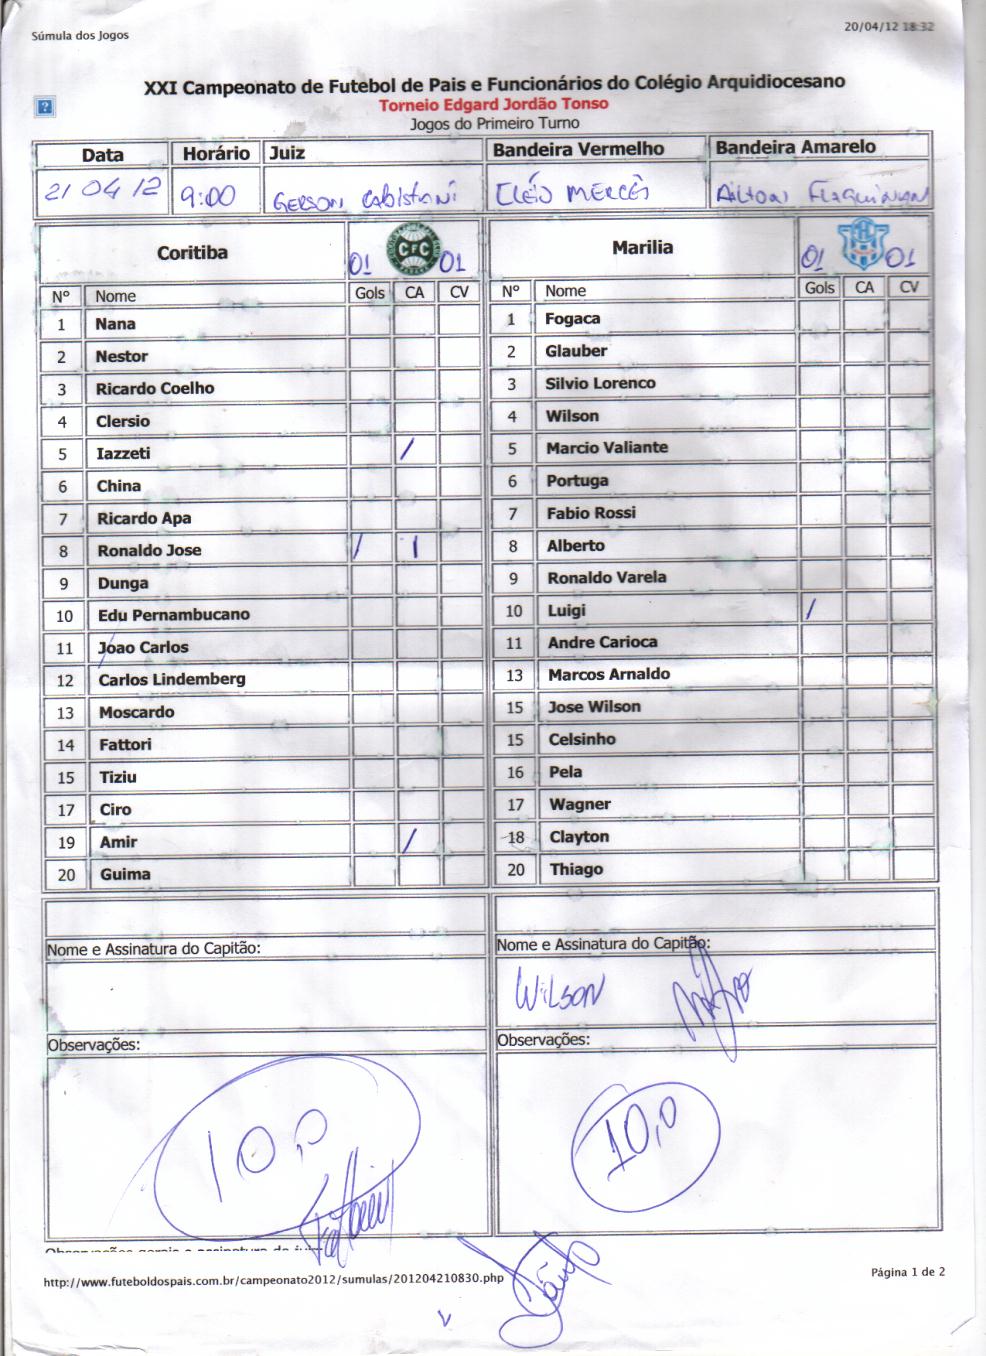 Súmula dos Jogos
20/04/12 18:32
XXI Campeonato de Futebol de Pais e Funcionários do Colégio Arquidiocesano
?
Torneio Edgard Jordão Tonso
Jogos do Primeiro Turno
Data Horário Juiz Bandeira Vermelho Bandeira Amarelo
21 04 12 9:00 GERSON CLÉIO MERCÊS AILTON
Coritiba CFC 01 01 Marilia 01 01
Nº Nome Gols CA CV Nº Nome Gols CA CV
1 Nana 1 Fogaca
2 Nestor 2 Glauber
3 Ricardo Coelho 3 Silvio Lorenco
4 Clersio 4 Wilson
5 Iazzeti / 5 Marcio Valiante
6 China 6 Portuga
7 Ricardo Apa 7 Fabio Rossi
8 Ronaldo Jose / | 8 Alberto
9 Dunga 9 Ronaldo Varela
10 Edu Pernambucano 10 Luigi /
11 Joao Carlos 11 Andre Carioca
12 Carlos Lindemberg 13 Marcos Arnaldo
13 Moscardo 15 Jose Wilson
14 Fattori 15 Celsinho
15 Tiziu 16 Pela
17 Ciro 17 Wagner
19 Amir / 18 Clayton
20 Guima 20 Thiago
Nome e Assinatura do Capitão: Nome e Assinatura do Capitão:
WILSON
Observações: Observações:
10,0 10,0
Observações gerais e assinatura do juiz:
http://www.futeboldospais.com.br/campeonato2012/sumulas/201204210830.php
Página 1 de 2